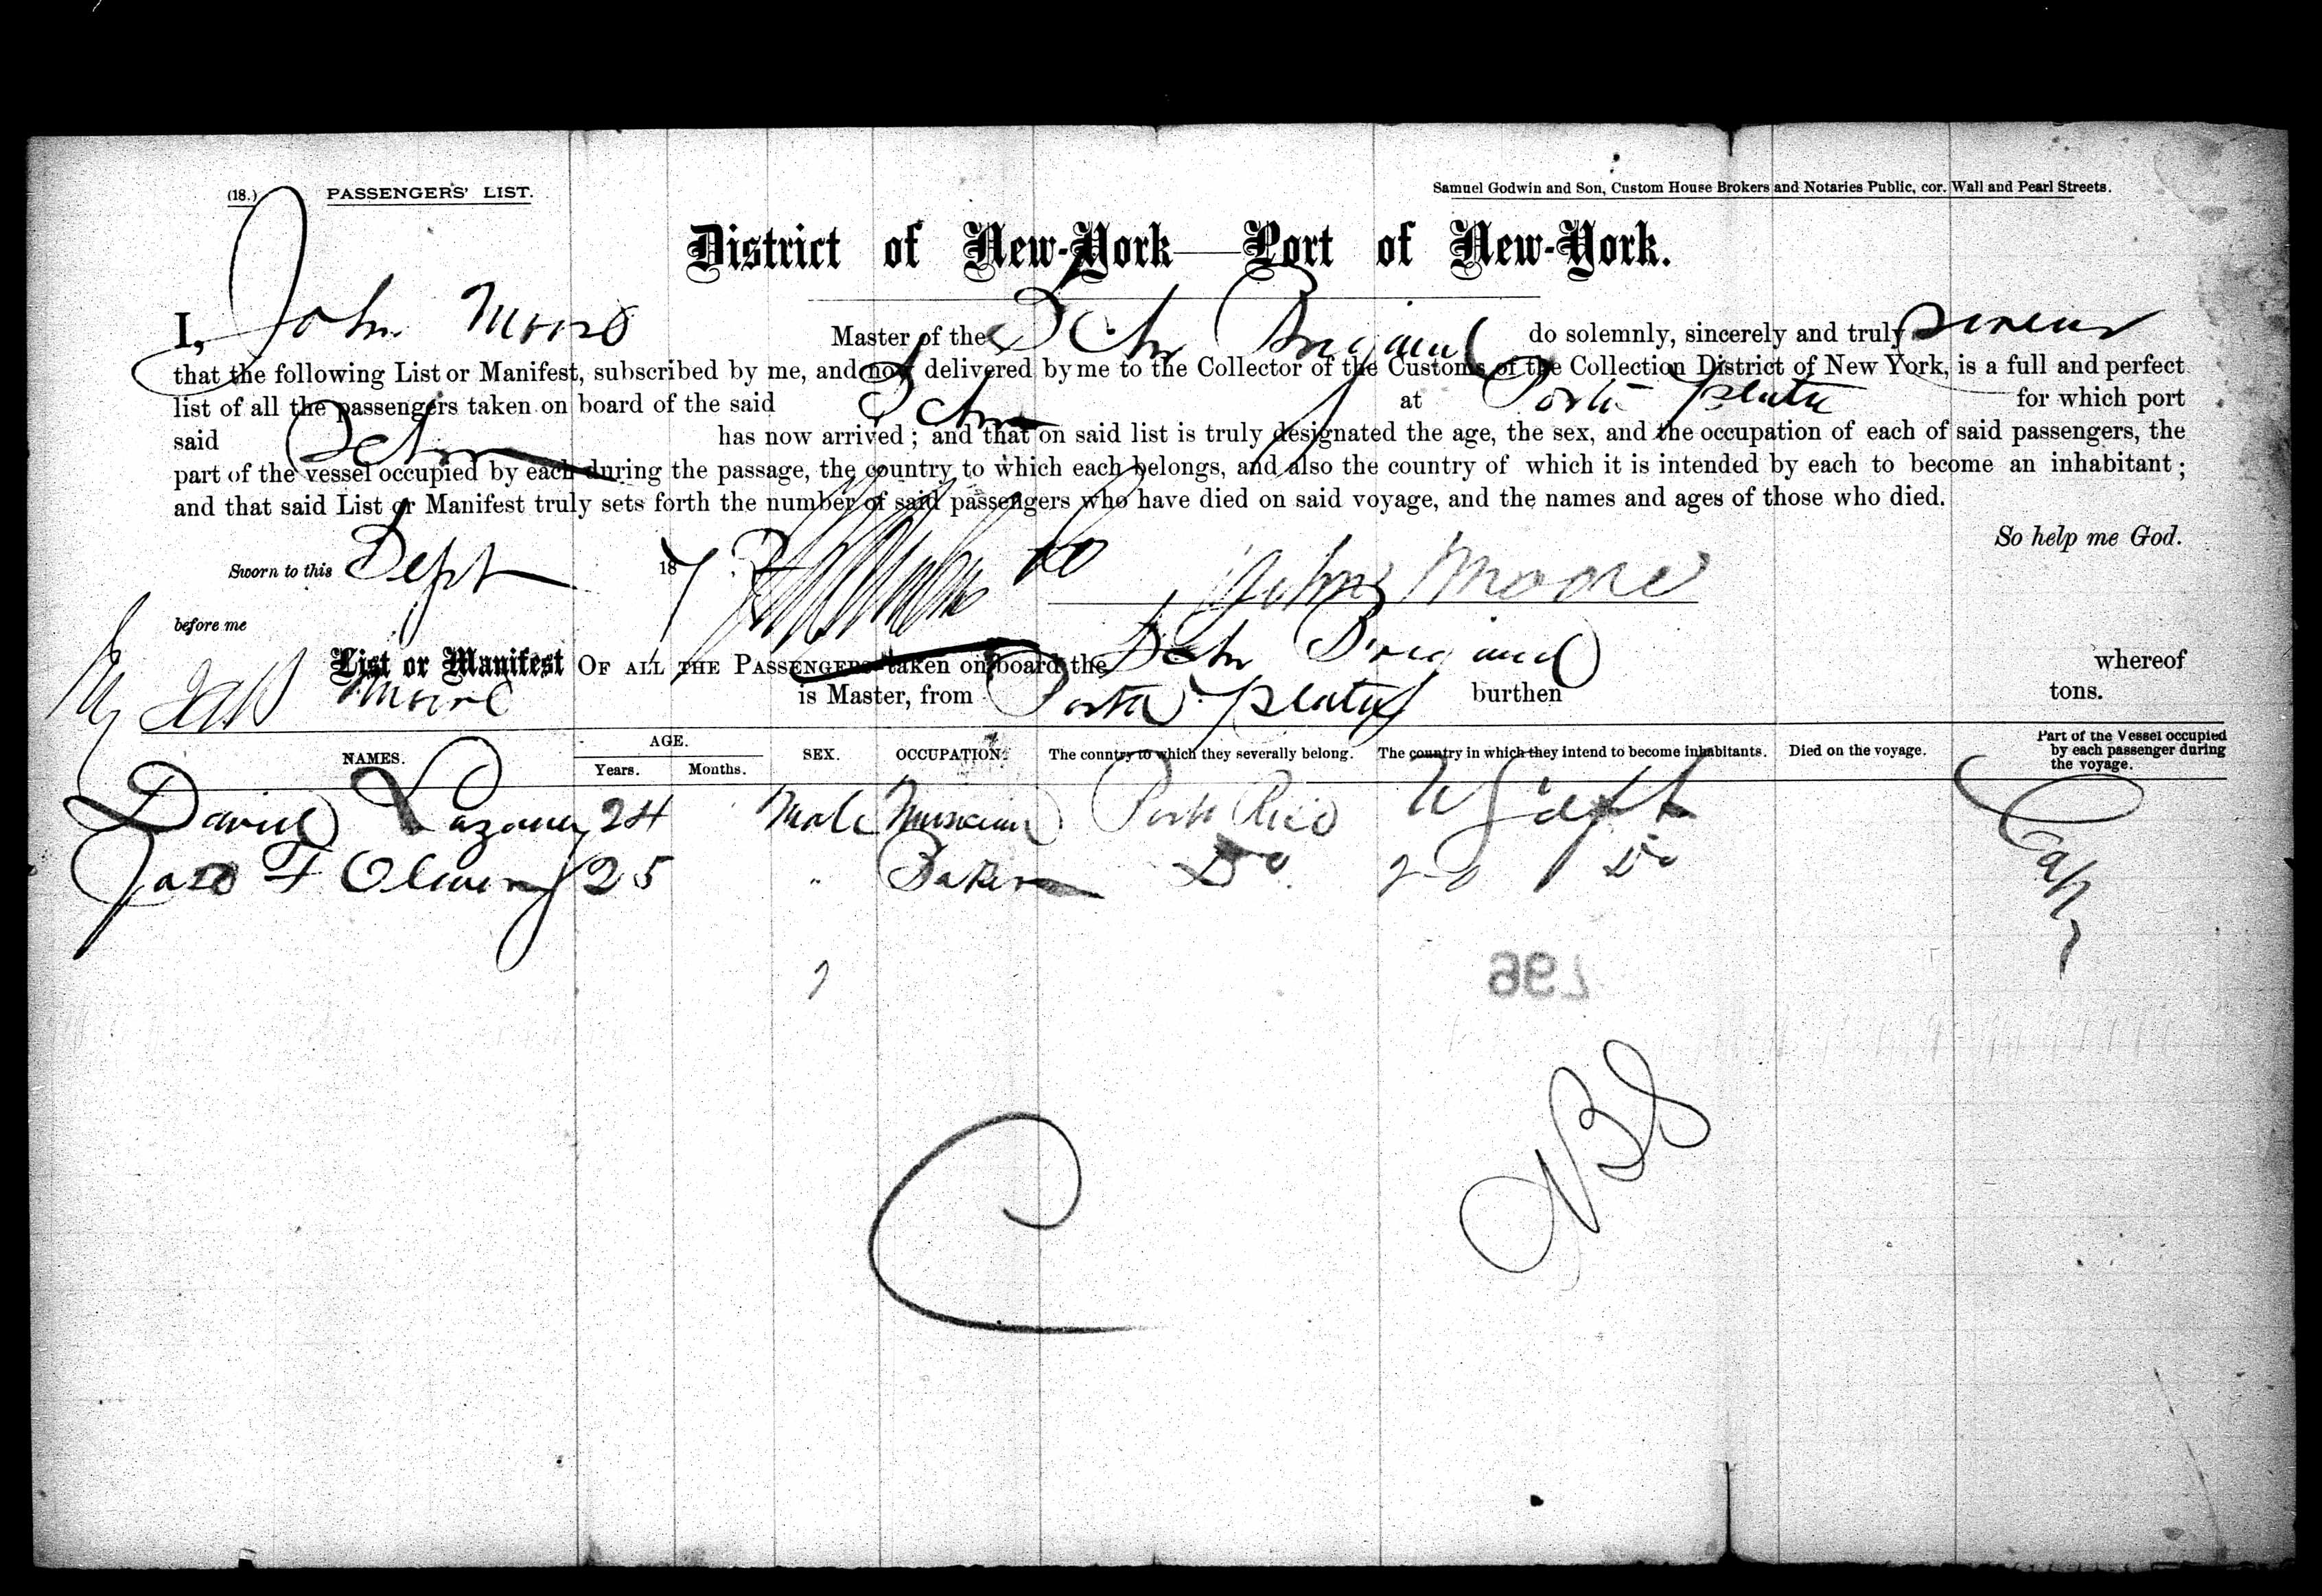 (18.) PASSENGERS' LIST. Samuel Godwin and Son, Custom House Brokers and Notaries Public, cor. Wall and Pearl Streets.
District of New-York—Port of New-York.
I, John Moore Master of the Schr Brigand do solemnly, sincerely and truly swear
that the following List or Manifest, subscribed by me, and now delivered by me to the Collector of the Customs of the Collection District of New York, is a full and perfect
list of all the passengers taken on board of the said Schr at Porto Platta for which port
said Schr has now arrived; and that on said list is truly designated the age, the sex, and the occupation of each of said passengers, the
part of the vessel occupied by each during the passage, the country to which each belongs, and also the country of which it is intended by each to become an inhabitant;
and that said List or Manifest truly sets forth the number of said passengers who have died on said voyage, and the names and ages of those who died.
So help me God.
Sworn to this Sept 187 John Moore
before me
List or Manifest OF ALL THE PASSENGERS taken on board the Schr Brigand whereof
Moore is Master, from Porto Platta burthen tons.
NAMES. AGE. Years. Months. SEX. OCCUPATION. The country to which they severally belong. The country in which they intend to become inhabitants. Died on the voyage. Part of the Vessel occupied by each passenger during the voyage.
David 24 Male Musician Porto Rico
F 25 " Baker Do Do
796